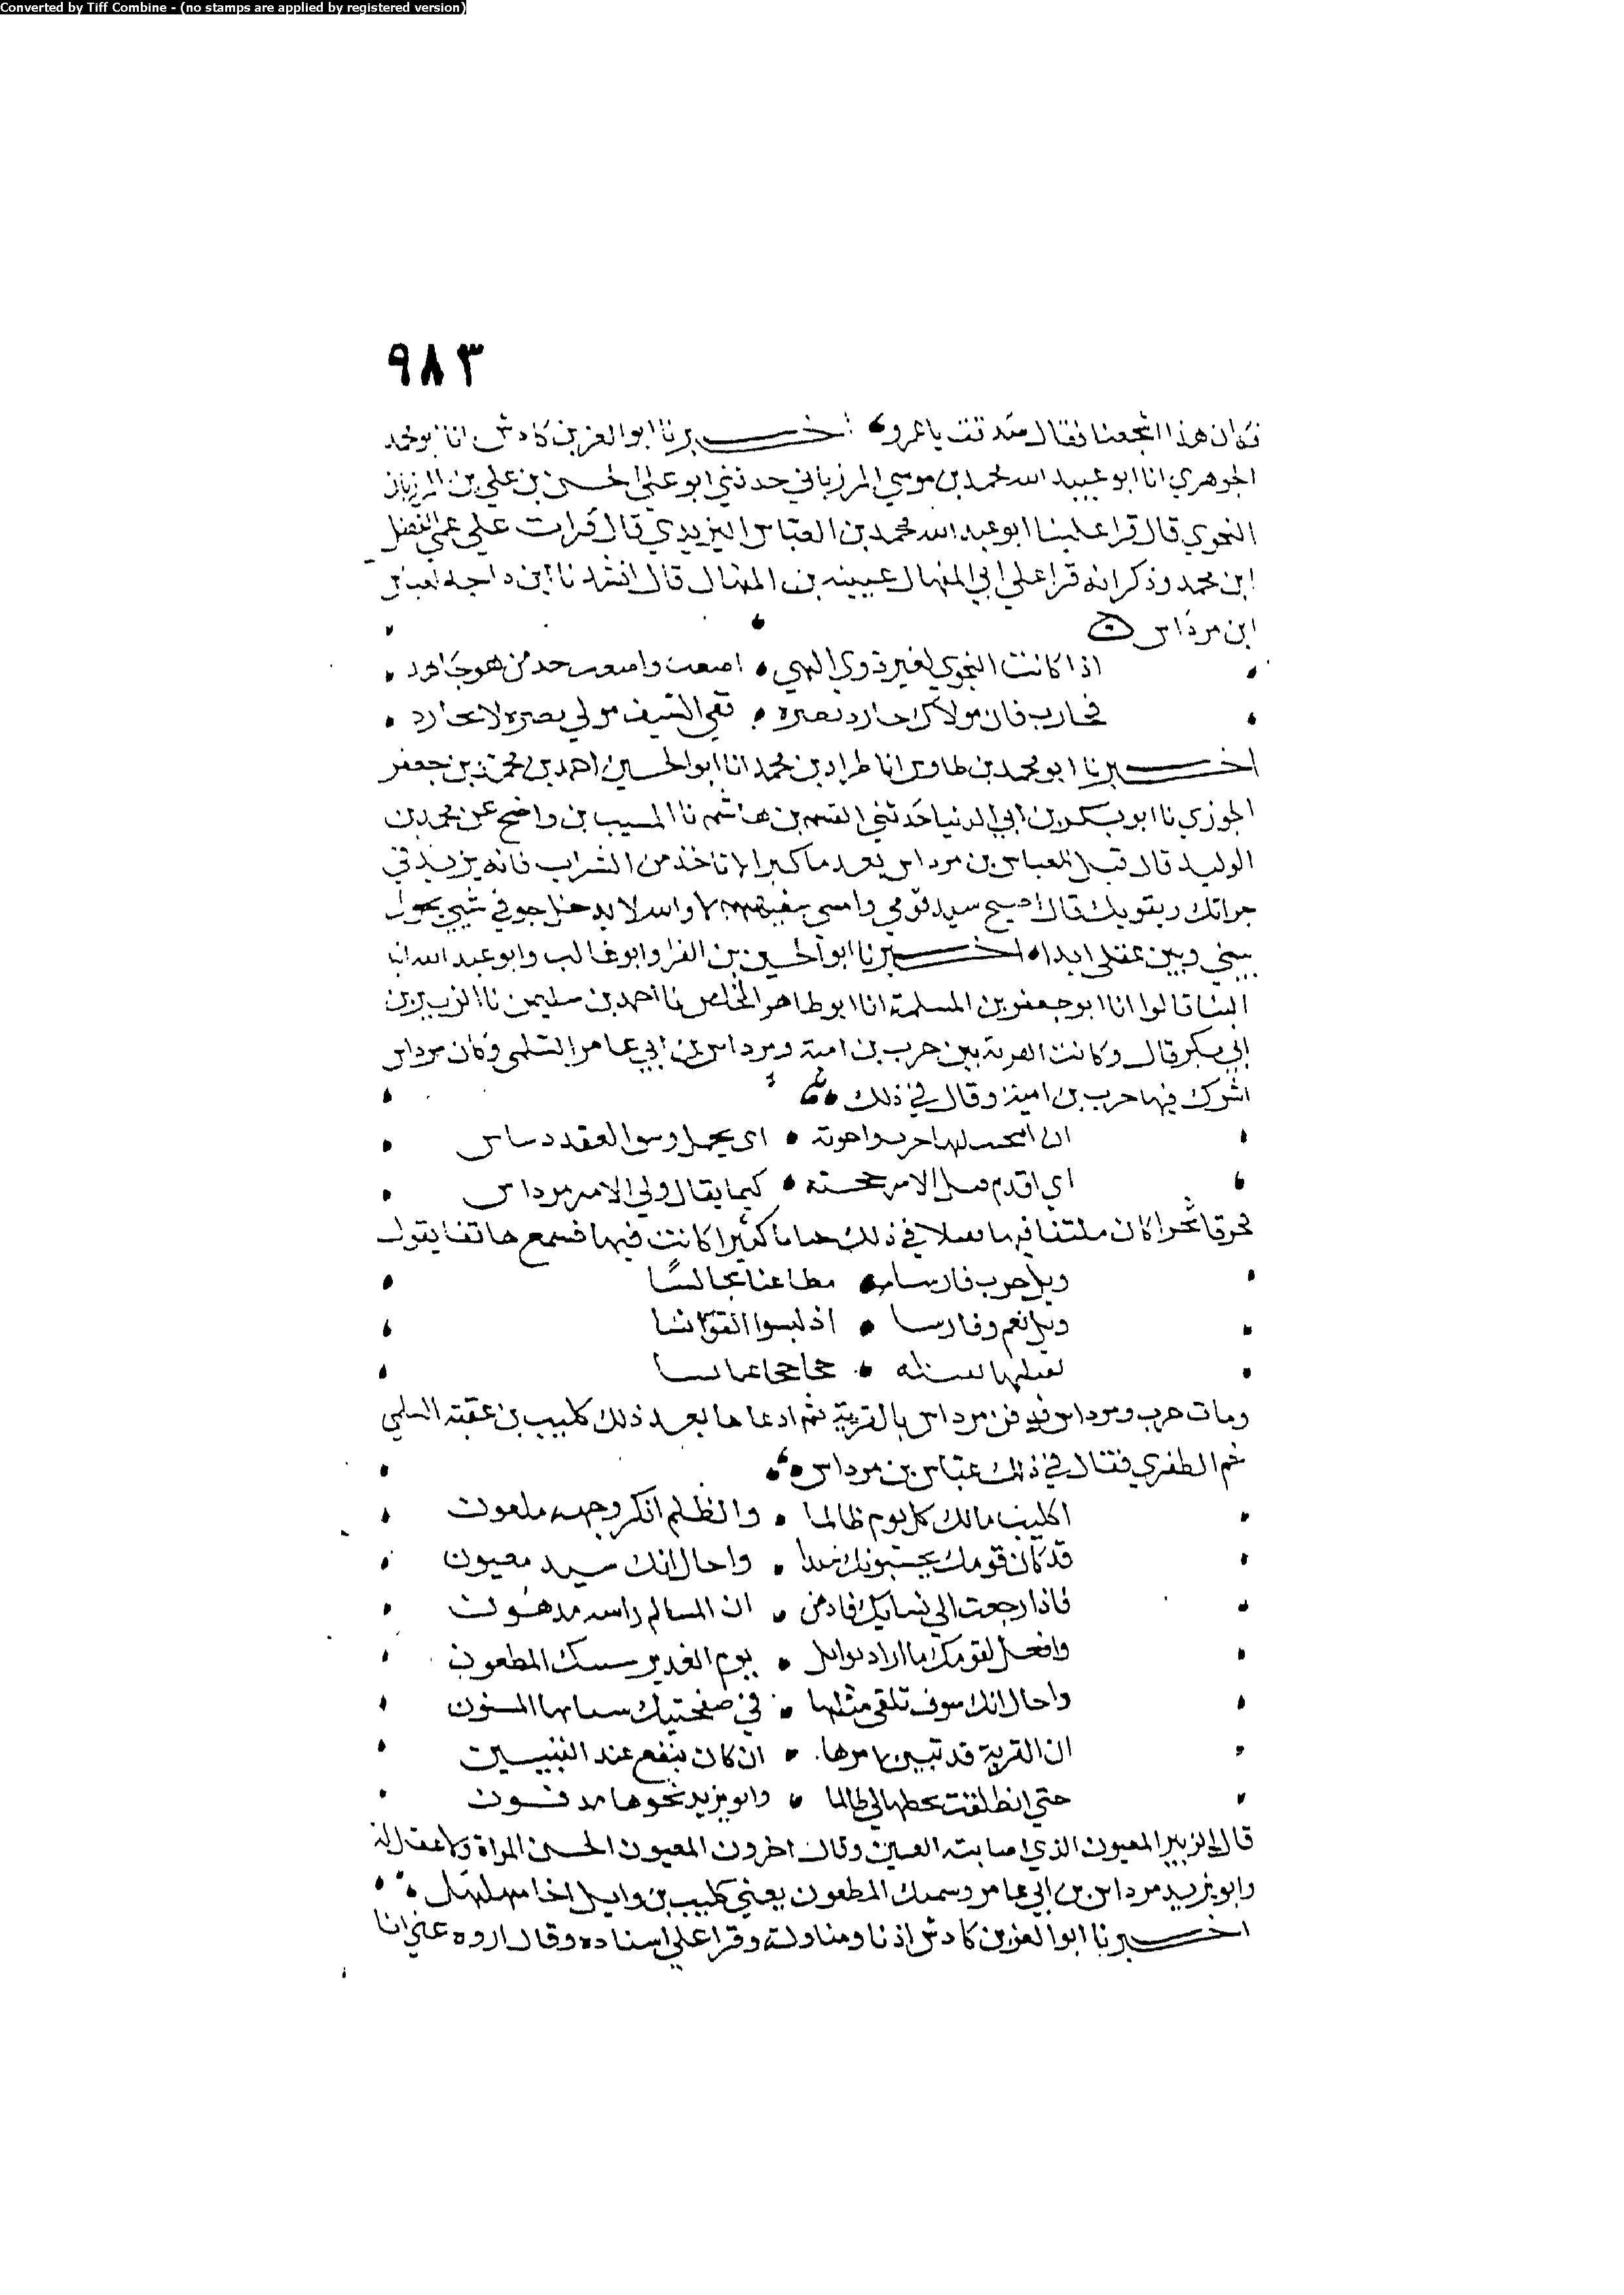 Converted by Tiff Combine - (no stamps are applied by registered version)
٩٨٣
فكان هذا اشجعنا فقال صدقت يا عمرو اخبرنا ابو العز بن كادش انا ابو محمد
الجوهري انا ابو عبيد الله محمد بن موسي المرزباني حدثني ابو علي الحسن بن علي بن المرزبان
النحوي قال قرا علينا ابو عبد الله محمد بن العباس اليزيدي قال قرات علي عمي الفضل
ابن محمد وذكر انه قرا علي ابي المنهال عيينه بن المنهال قال انشدنا ابن داجه لعباس
ابن مرداس
اذا كانت النجوي لغير ذوي النهي
فحارب فان مولاك حارد نصره ففي السيف مولي نصره لا يحارد
اخبرنا ابو محمد بن طاوس انا طراد بن محمد انا ابو الحسين احمد بن محمد بن جعفر
الجوزي نا ابو بكر بن ابي الدنيا حدثني القسم بن هاشم نا المسيب بن واضح عن محمد بن
الوليد قال قيل للعباس بن مرداس بعد ما كبر الا تاخذ من الشراب فانه يزيد في
جراتك ويقويك قال اصبح سيد قومي وامسي سفيههم لا والله لا يدخل جوفي شيي يحول
بيني وبين عقلي ابدا اخبرنا ابو الحسين بن الفرا وابو غالب وابو عبد الله ابنا
البنا قالوا انا ابو جعفر بن المسلمة انا ابو طاهر المخلص نا احمد بن سليمن نا الزبير بن
ابي بكر قال وكانت القرية بين حرب بن امية ومرداس بن ابي عامر السلمي وكان مرداس
اشرك فيها حرب بن امية وقال في ذلك
اني انتخبت لها حربا واخوته اني بحبل وسق العقد دساس
اني اقدم قبل الامر حجته كيما يقال ولي الامر مرداس
فحرقا شجرا كان ملتفا فيها فقتلا في ذلك حياتا كثيرا كانت فيها فسمع هاتفا يقول
ويل حرب فارسا مطاعنا مخالسا
ويل نعم وفارسا اذ لبسوا القوانسا
لنقتلن جحاجحا عنابسا
ومات حرب ومرداس فدفن مرداس بالقرية ثم ادعاها بعد ذلك كليب بن عقبة السلمي
ثم الظفري فقال في ذلك عباس بن مرداس
اكليب مالك كل يوم ظالما والظلم انكر وجهه ملعون
قد كان قومك يحسبونك سيدا واخال انك سيد معيون
فاذا رجعت الي نسايك فادهن ان المسالم راسه مدهون
وافعل لقومك ما اراد بوايل يوم الغدير سميك المطعون
واخال انك سوف تلقي مثلها في صفحتيك سنانها المسنون
ان القرية قد تبين امرها ان كان ينفع عند التبيين
حتي انطلقت تخطها لي ظالما وابو يزيد نحوها مدفون
قال الزبير المعيون الذي اصابته العين وقال اخرون المعيون الحسن المراة ولا عقل له
وابو يزيد مرداس بن ابي عامر وسميك المطعون يعني كليب بن وايل اخا مهلهل
اخبرنا ابو العز بن كادش اذنا ومناولة وقرا علي اسناده وقال اروه عني انا